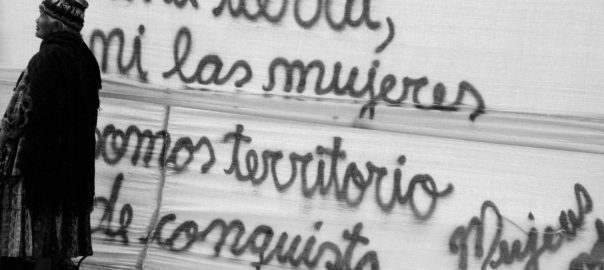 tierra,
ni las mujeres
somos territorio
de conquista
Mujeres